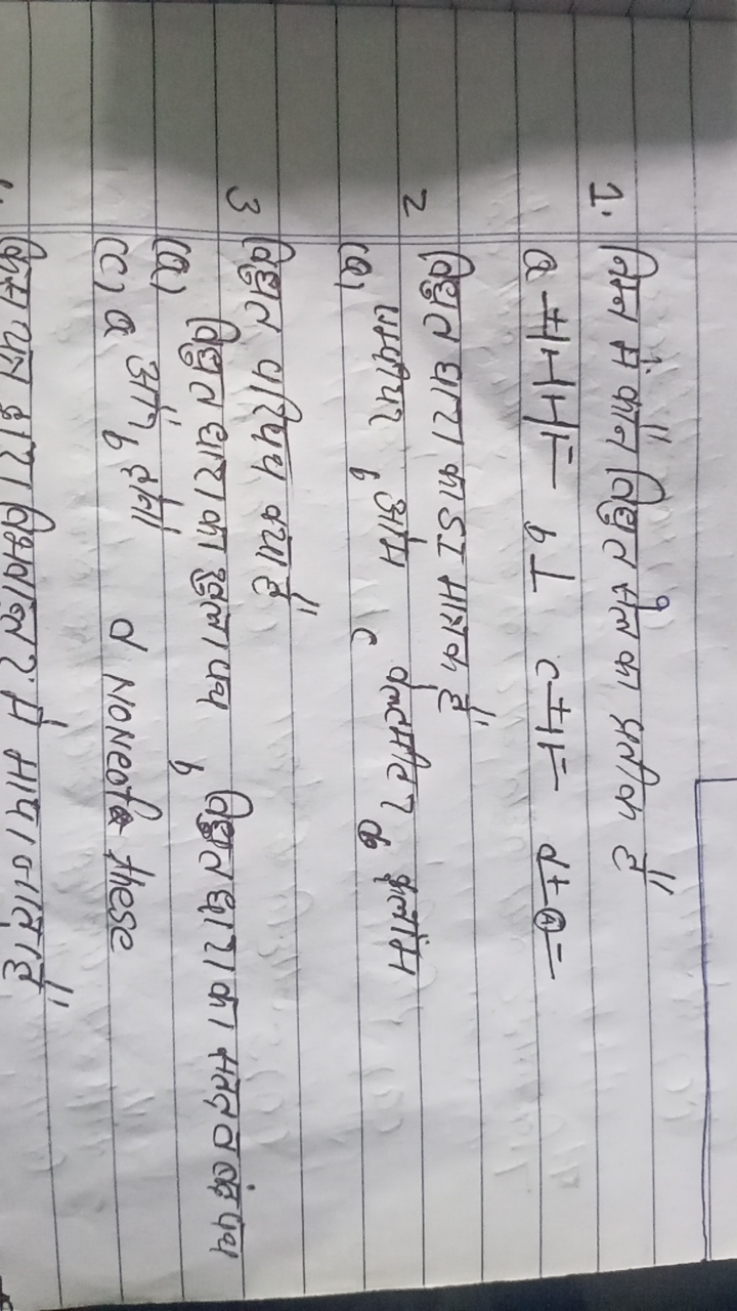 1. निम्न में कौन विद्युत सेल का प्रतीक हैं
a b c d
2 विद्युत धारा का SI मात्रक हैं
(a) b ओम c d कूलॉम
3 विद्युत परिपथ क्या हैं
(a) विद्युत धारा का खुला पथ b विद्युत धारा का पथ
(c) a और b दोनों d None of these
किस यंत्र द्वारा मापा जाता हैं